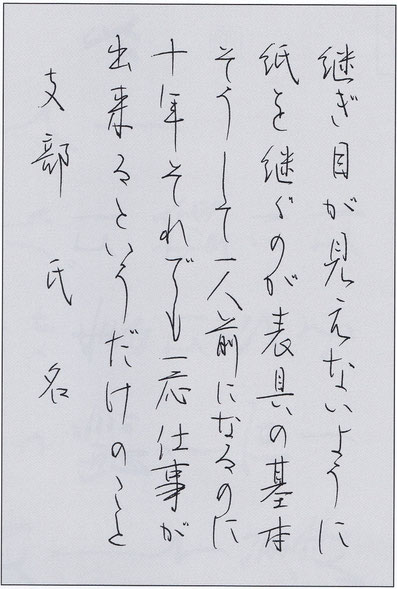 継ぎ目が見えないように
紙を継ぐのが表具の基本
そうして一人前になるのに
十年それでも一応仕事が
出来るというだけのこと
支部 氏名